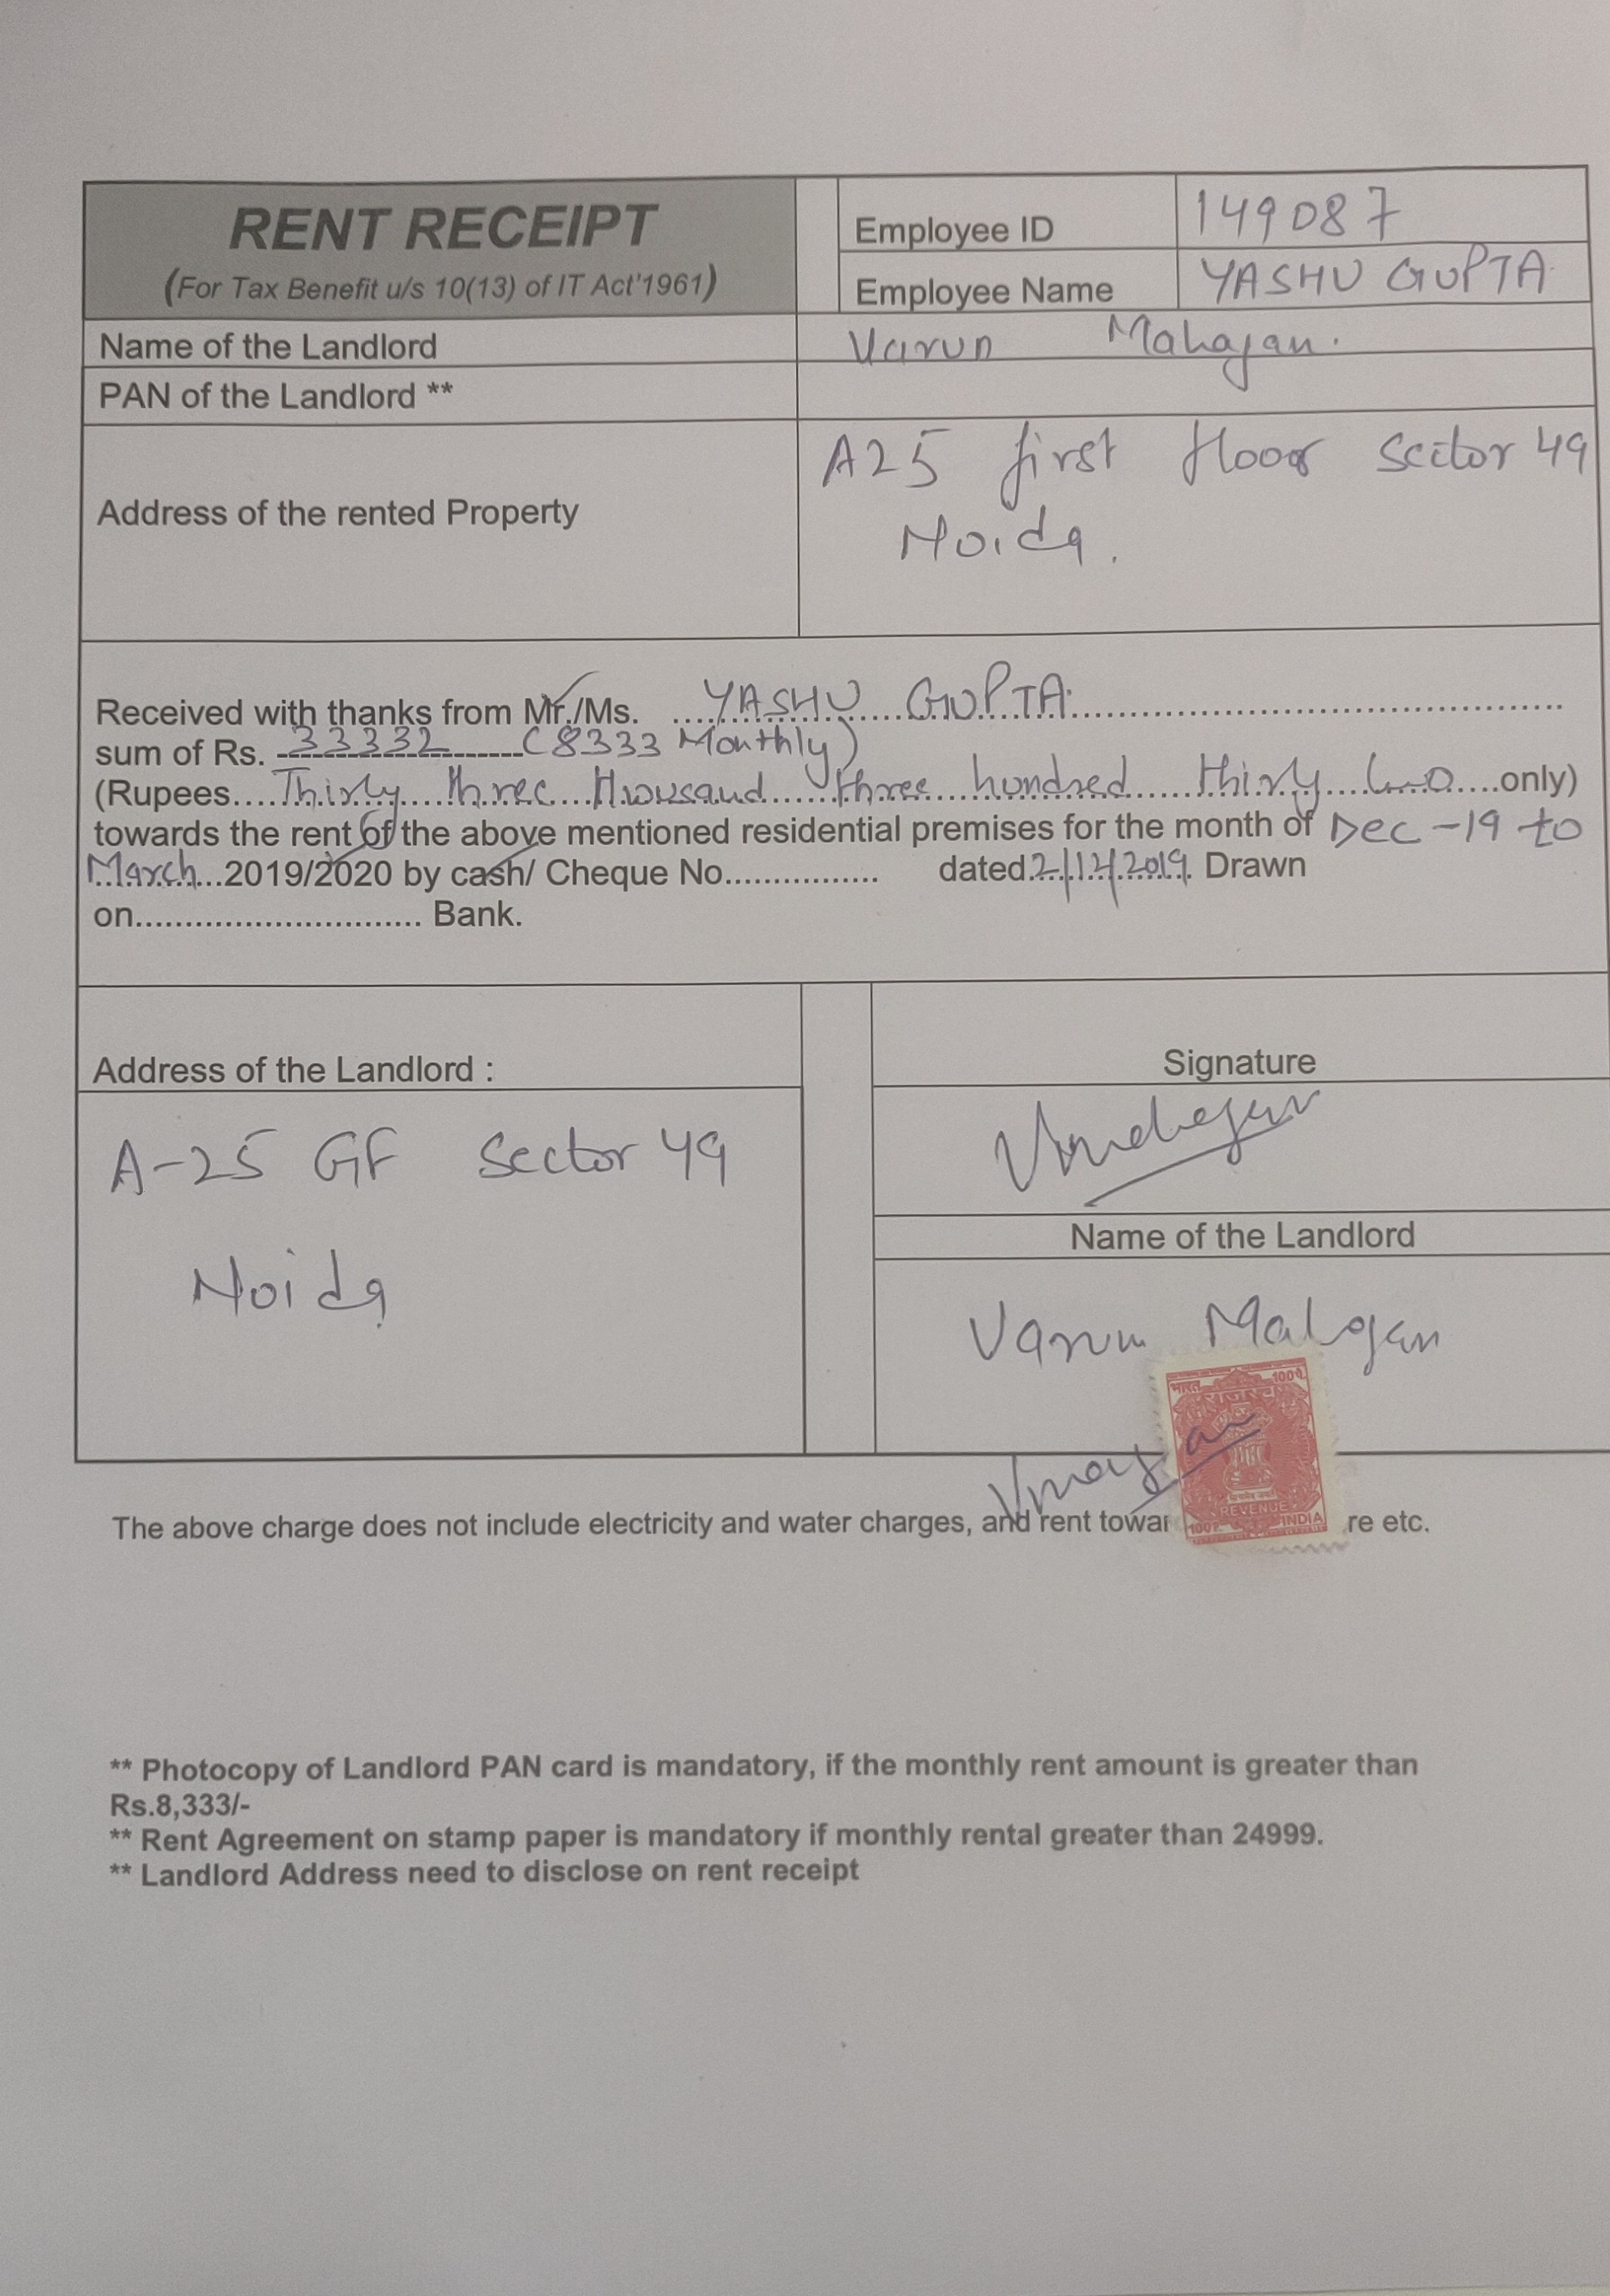 RENT RECEIPT
(For Tax Benefit u/s 10(13) of IT Act'1961)
Employee ID 149087
Employee Name YASHU GUPTA
Name of the Landlord Varun Mahajan.
PAN of the Landlord **
Address of the rented Property A25 first floor Sector 49
Noida.
Received with thanks from Mr./Ms. ....YASHU GUPTA....
sum of Rs. 33332 (8333 Monthly)
(Rupees....Thirty three thousand three hundred thirty two....only)
towards the rent of the above mentioned residential premises for the month of Dec-19 to
March...2019/2020 by cash/ Cheque No................ dated 2/12/2019. Drawn
on............................. Bank.
Address of the Landlord :
A-25 GF Sector 49
Noida
Signature
Name of the Landlord
Varun Mahajan
भारत 100पै.
राजस्व
REVENUE
100P. INDIA
The above charge does not include electricity and water charges, and rent towar re etc.
** Photocopy of Landlord PAN card is mandatory, if the monthly rent amount is greater than
Rs.8,333/-
** Rent Agreement on stamp paper is mandatory if monthly rental greater than 24999.
** Landlord Address need to disclose on rent receipt